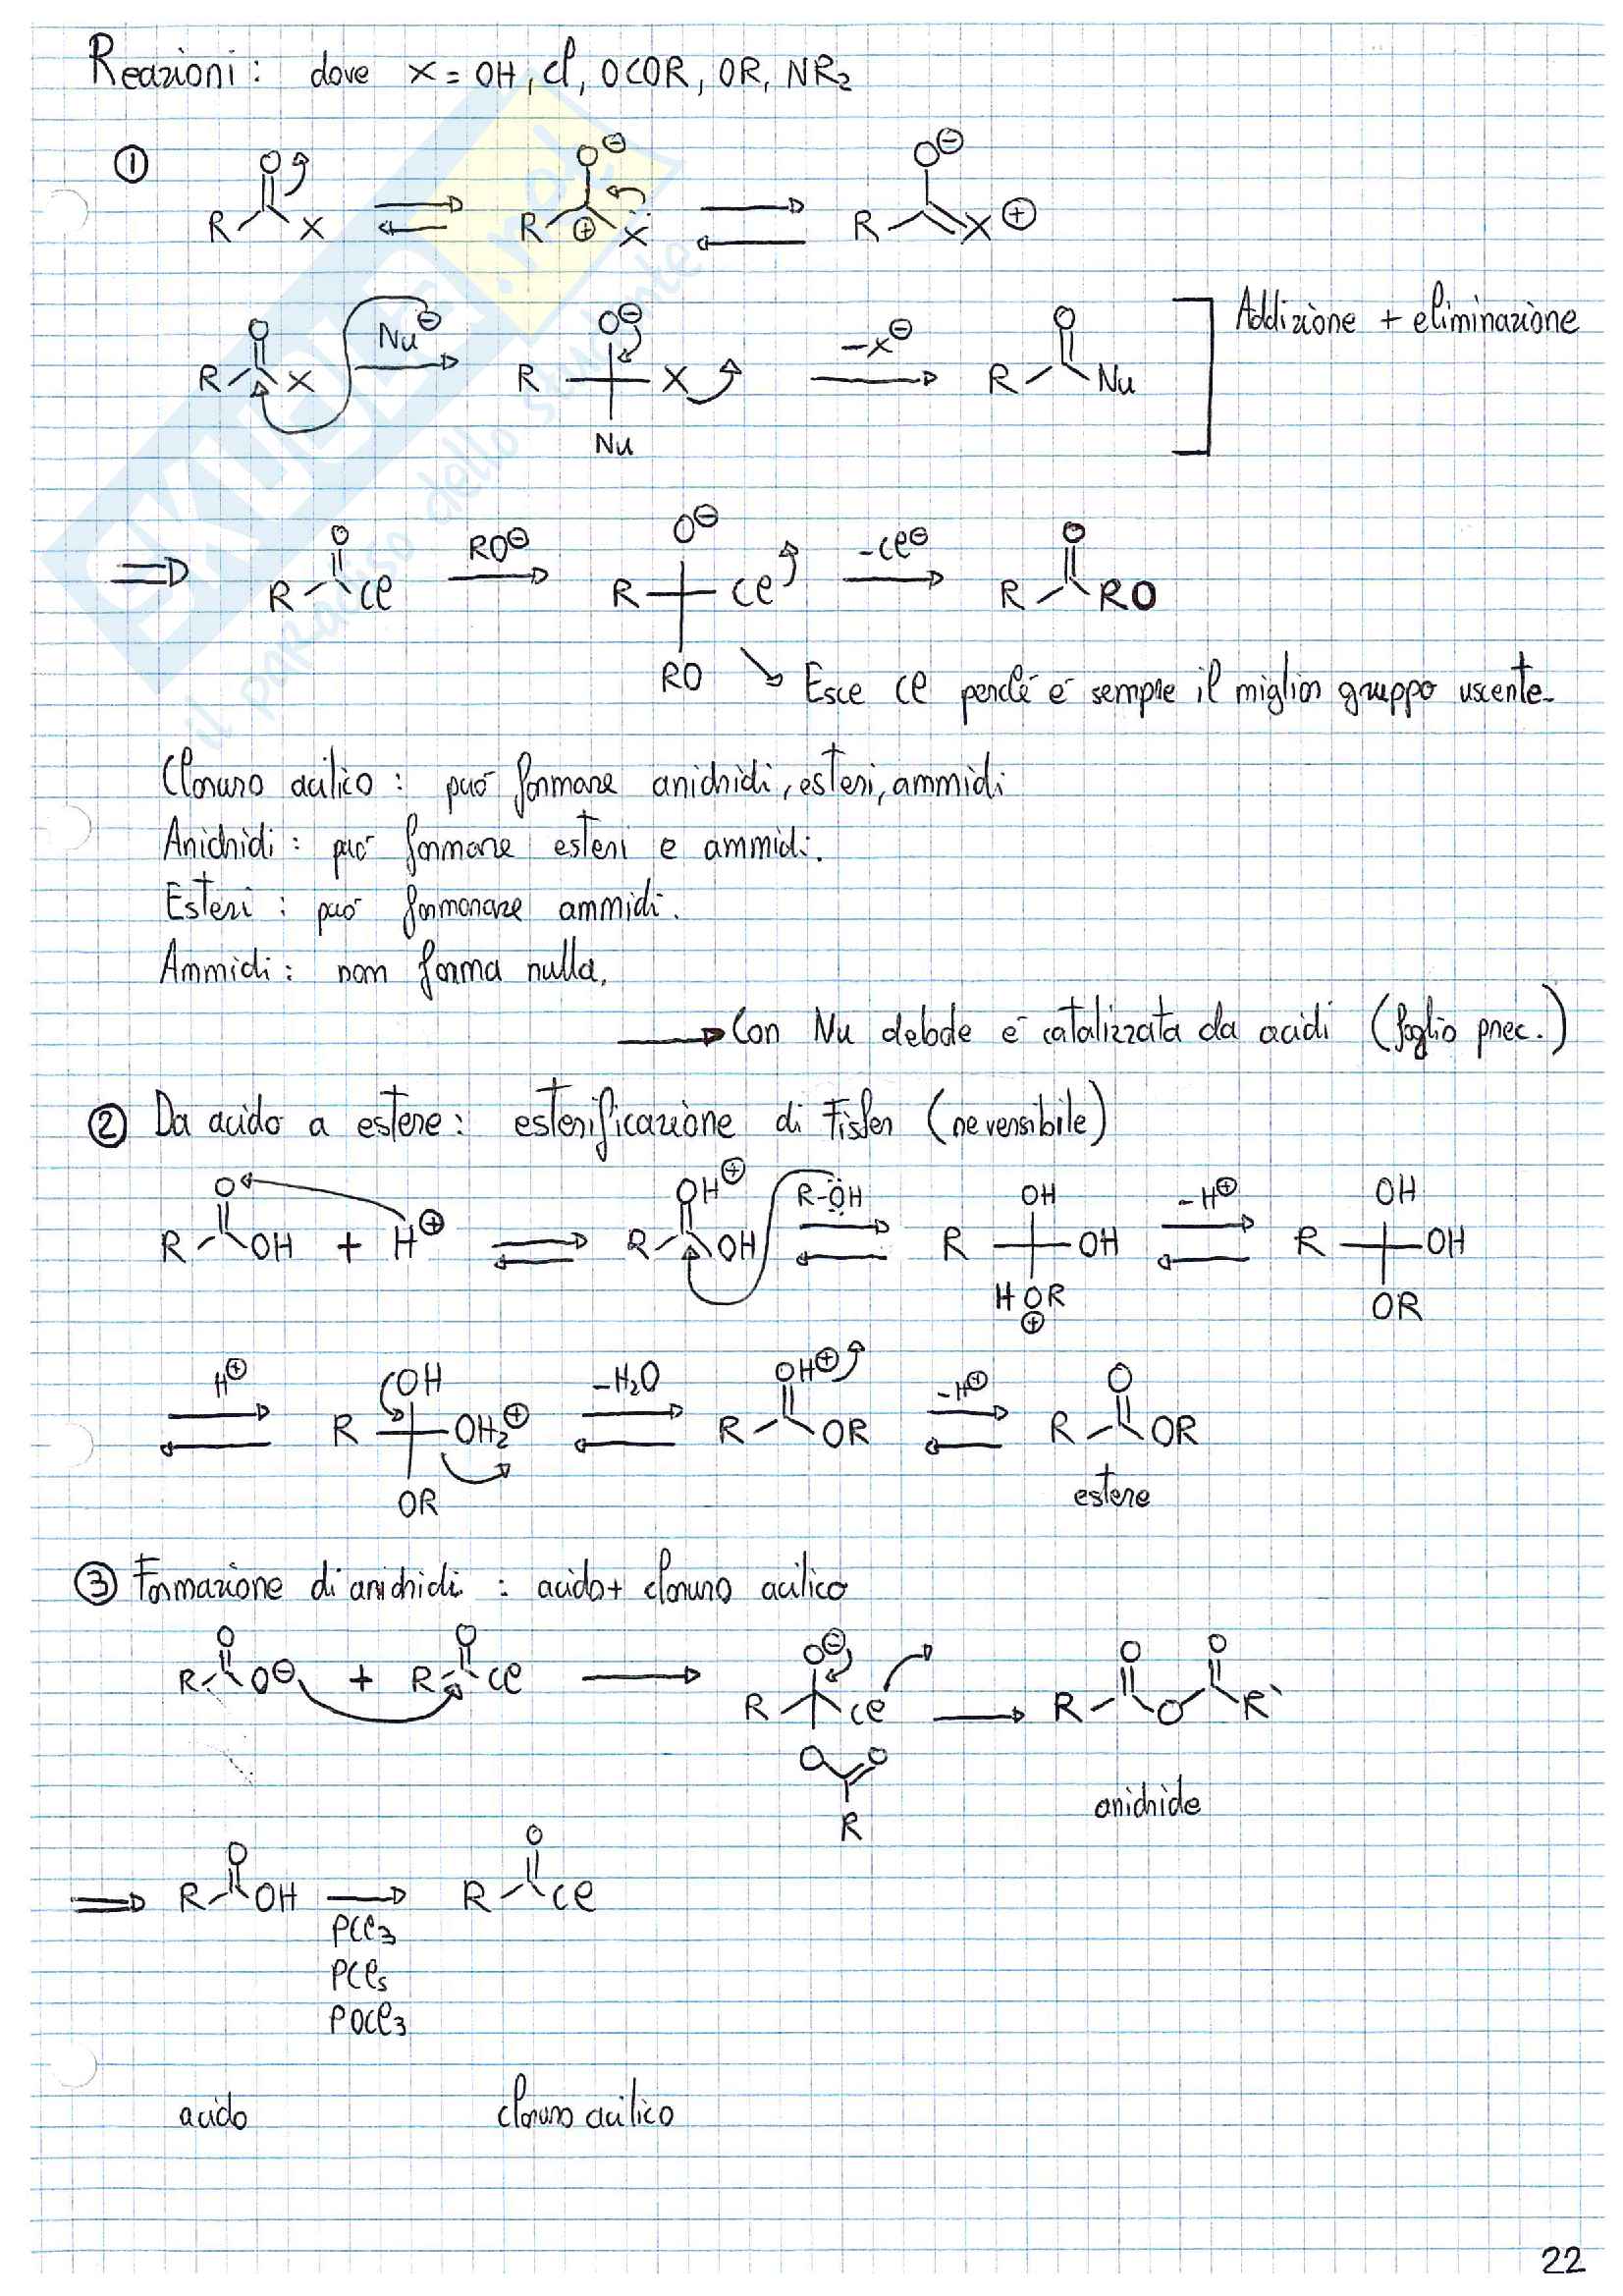 Reazioni: dove X = OH, Cl, OCOR, OR, NR2
① O O⊖ O⊖
R X R ⊕ Ẍ R X⊕
O Nu⊖ O⊖ -X⊖ O Addizione + eliminazione
R X R X R Nu
Nu
O RO⊖ O⊖ -Cl⊖ O
R Cl R Cl R RO
RO Esce Cl perché è sempre il miglior gruppo uscente.
Cloruro acilico: può formare anidridi, esteri, ammidi
Anidridi: può formare esteri e ammidi.
Esteri: può formarare ammidi.
Ammidi: non forma nulla.
→ Con Nu debole è catalizzata da acidi (foglio prec.)
② Da acido a estere: esterificazione di Fisher (reversibile)
O OH⊕ R-ÖH OH -H⊕ OH
R OH + H⊕ R OH R OH R OH
HOR OR
⊕
H⊕ OH -H2O OH⊕ -H⊕ O
R OH2⊕ R OR R OR
OR estere
③ Formazione di anidridi: acido + cloruro acilico
O O O⊖ O O
R O⊖ + R Cl R Cl R O R'
O O
R anidride
O O
R OH R Cl
PCl3
PCl5
POCl3
acido cloruro acilico
22
SKUOLA.net
il paradiso dello studente